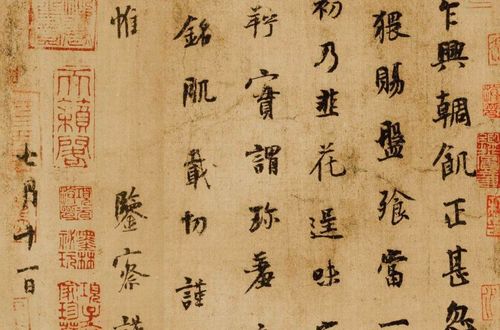 乍興輖飢正甚忽
猥賜盤飧當一
初乃韭花逞味
羜實謂珍羞
銘肌載切謹
惟 鑒察謹
七月十一日
天籟閣
墨林祕玩